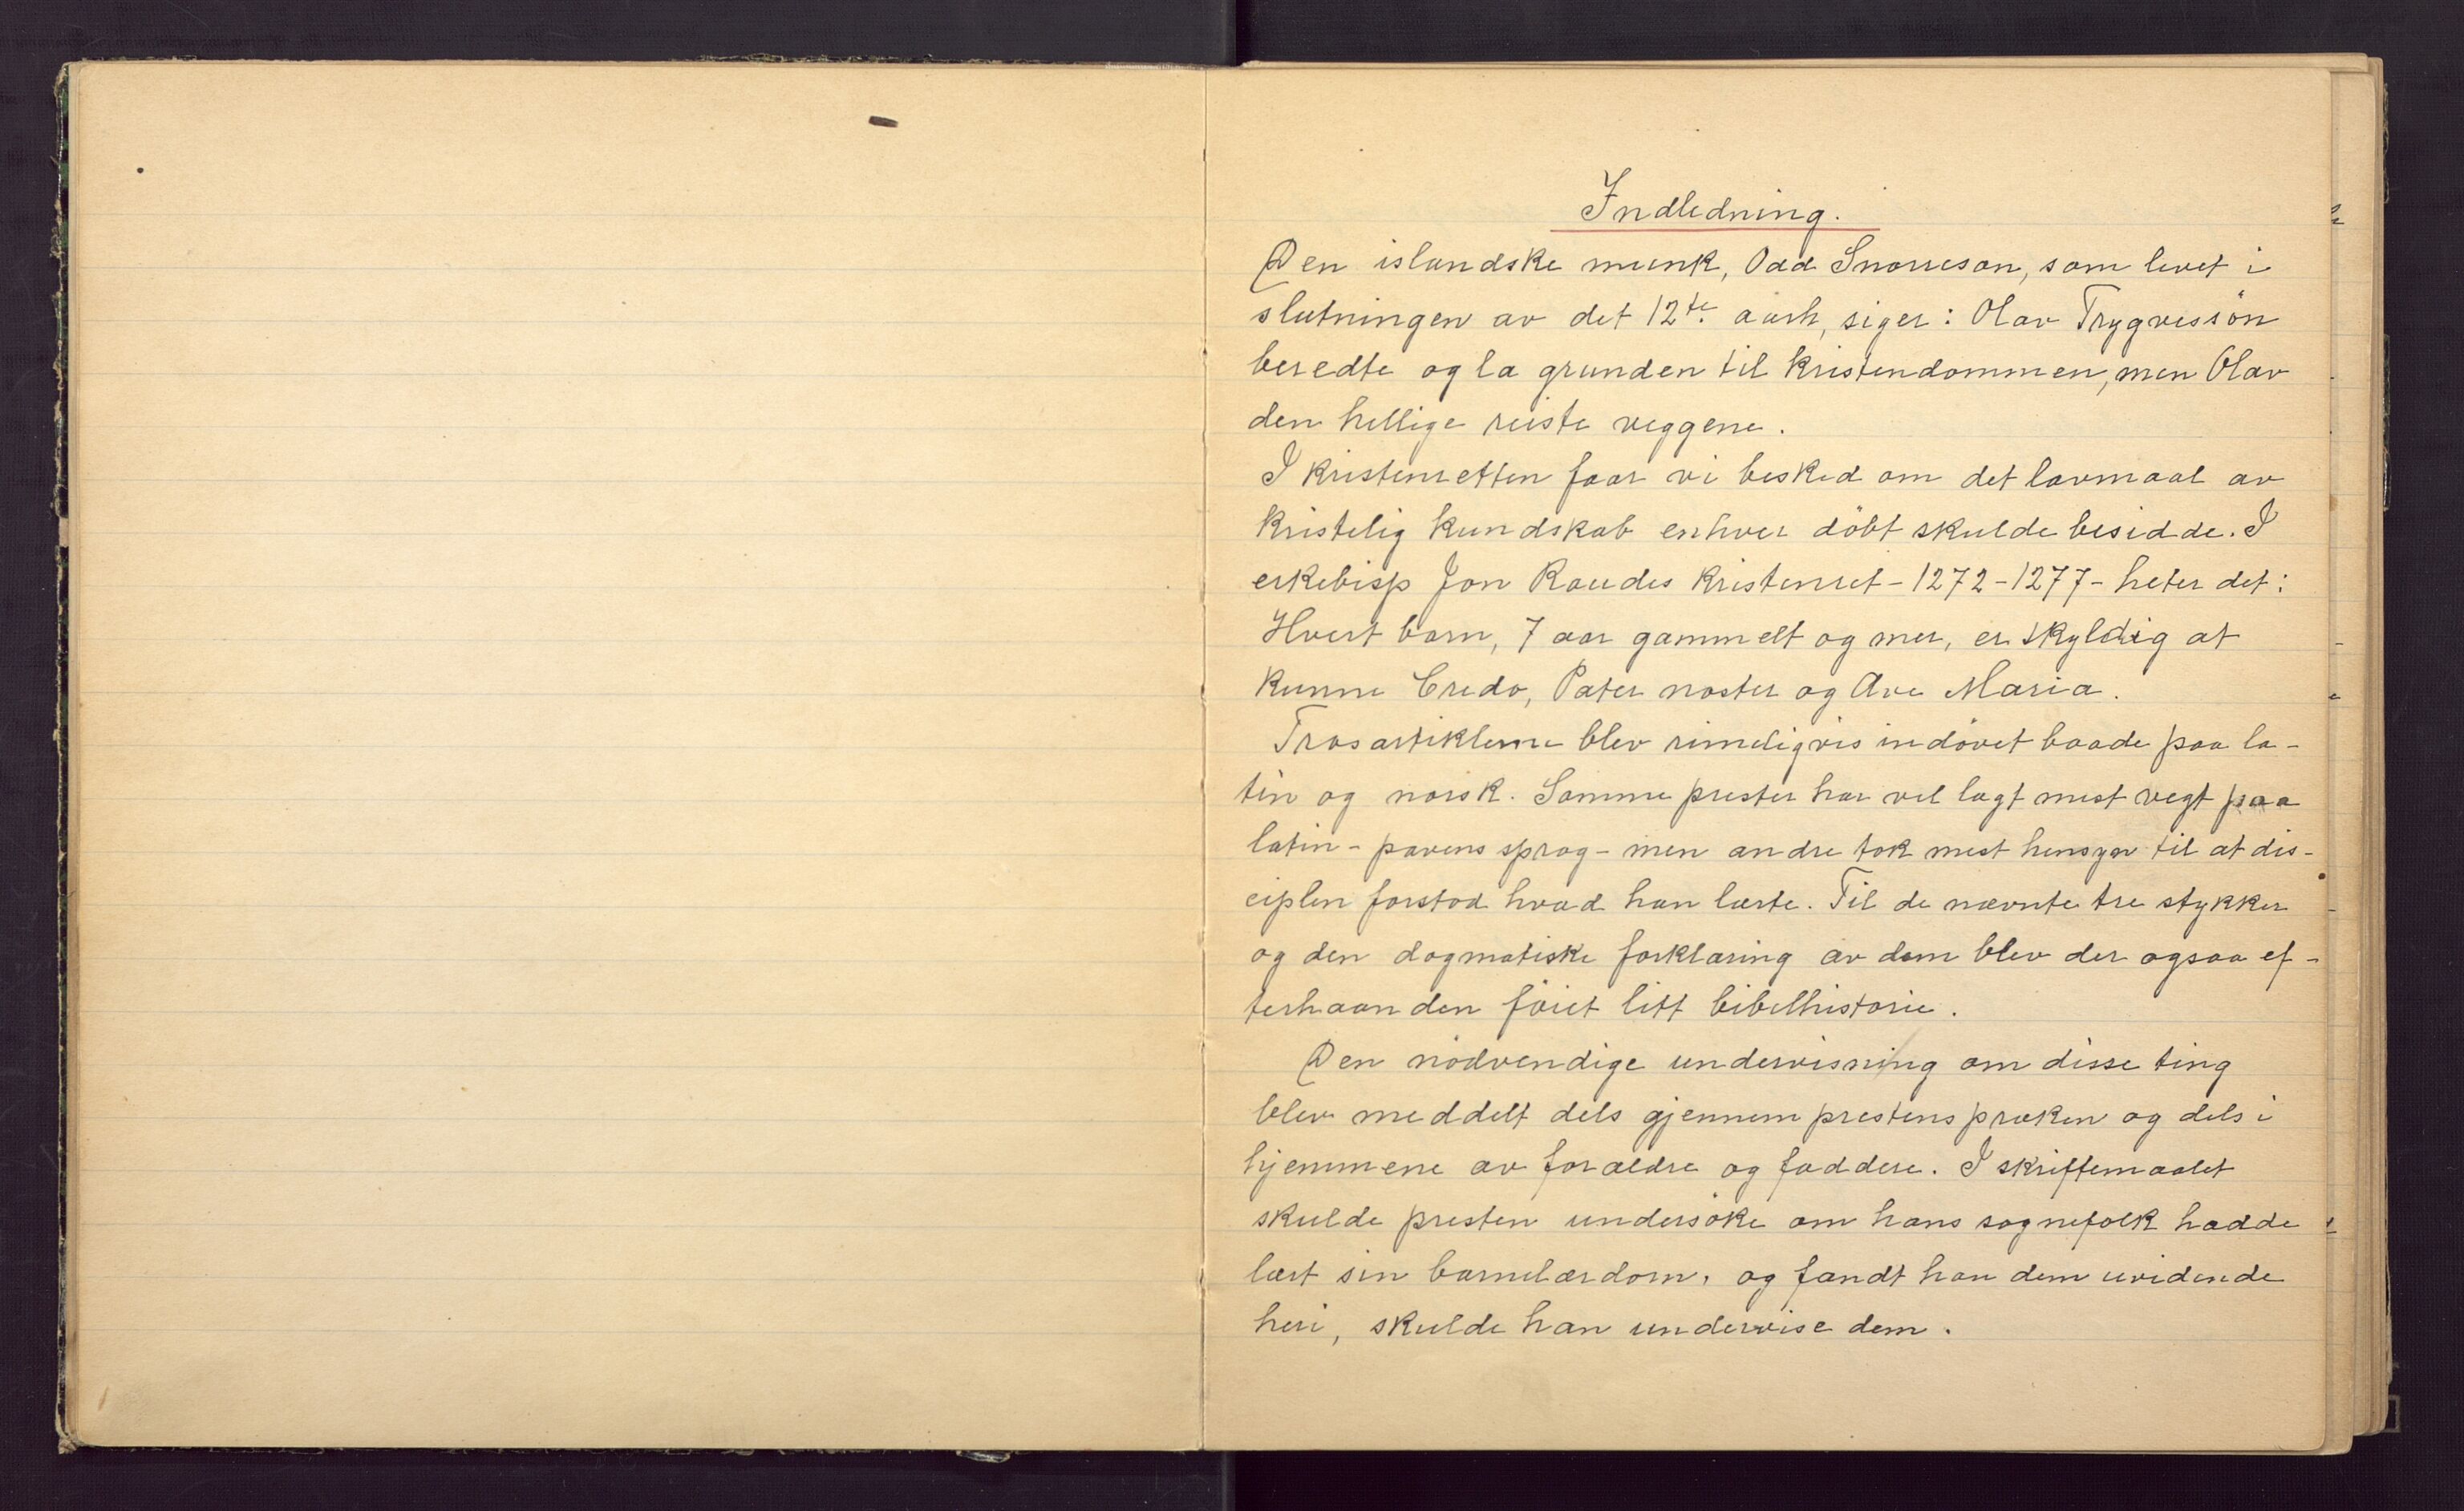 Indledning.
Den islandske munk, Odd Snorreson, som levet i
slutningen av det 12te. aarh, siger: Olav Trygvessön
beredte og la grunden til kristendommen, men Olav
den hellige reiste veggene.
I kristenretten faar vi besked om det lavmaal av
kristelig kundskab enhver döbt skulde besidde. I
erkebisp Jon Raudes kristenret - 1272 - 1277 - heter det:
Hvert barn, 7 aar gammelt og mer, er skyldig at
kunne Credo, Pater noster og Ave Maria.
Trosartiklerne blev rimeligvis indövet baade paa la-
tin og norsk. Somme prester har vel lagt mest vegt paa
latin - pavens sprog - men andre tok mest hensyn til at dis-
ciplen forstod hvad han lærte. Til de nævnte tre stykker
og den dogmatiske forklaring av dem blev der ogsaa ef-
terhaanden föiet litt bibelhistorie.
Den nödvendige undervisning om disse ting
blev meddelt dels gjennem prestens præken og dels i
hjemmene av forældre og faddere. I skriftemaalet
skulde presten undersöke om hans sognefolk hadde
lært sin barnelærdom, og fandt han dem uvidende
heri, skulde han undervise dem.